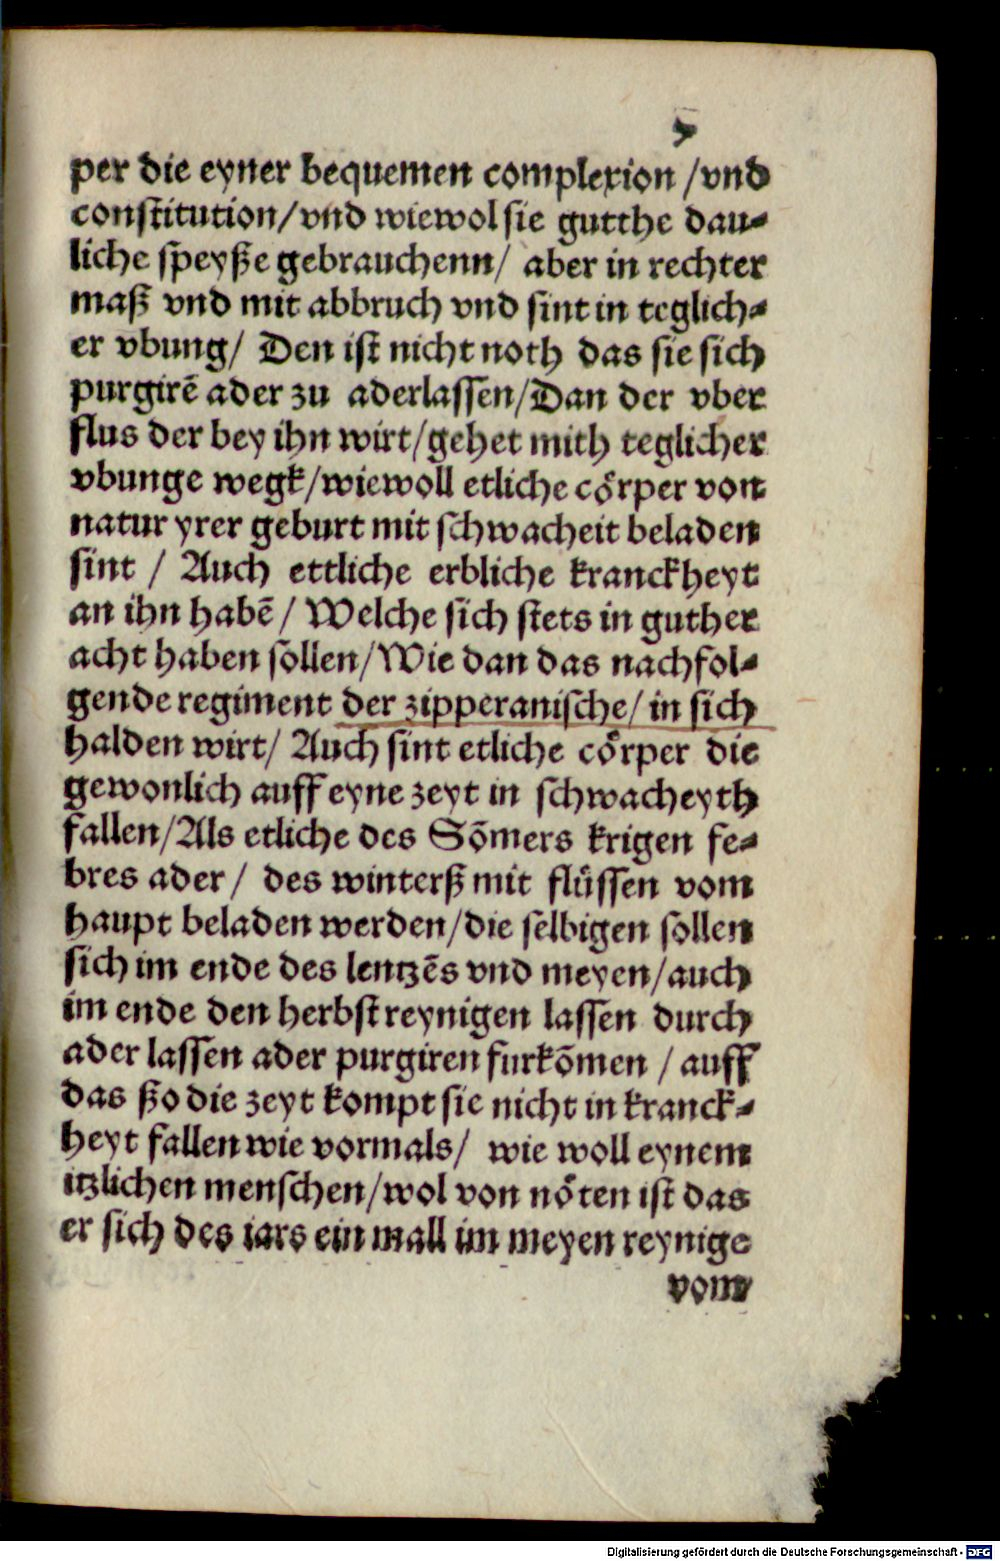 per die eyner bequemen complexion /vnd
constitution/vnd wiewol sie gutthe dau⸗
liche speyße gebrauchenn/ aber in rechter
maß vnd mit abbruch vnd sint in teglich⸗
er vbung/ Den ist nicht noth das sie sich
purgirē ader zu aderlassen/Dan der vber
flus der bey ihn wirt/gehet mith teglicher
vbunge wegk/wiewoll etliche cörper von
natur yrer geburt mit schwacheit beladen
sint / Auch ettliche erbliche kranckheyt
an ihn habē / Welche sich stets in guther
acht haben sollen/Wie dan das nachfol⸗
gende regiment der zipperanische/ in sich
halden wirt/ Auch sint etliche cörper die
gewonlich auff eyne zeyt in schwacheyth
fallen/Als etliche des Sōmers krigen fe⸗
bres ader/ des winterß mit flüssen vom
haupt beladen werden/die selbigen sollen
sich im ende des lentzēs vnd meyen/auch
im ende den herbst reynigen lassen durch
ader lassen ader purgiren furkōmen / auff
das ßo die zeyt kompt sie nicht in kranck⸗
heyt fallen wie vormals/ wie woll eynem
itzlichen menschen/wol von nöten ist das
er sich des iars ein mall im meyen reynige
vom
Digitalisierung gefördert durch die Deutsche Forschungsgemeinschaft - DFG